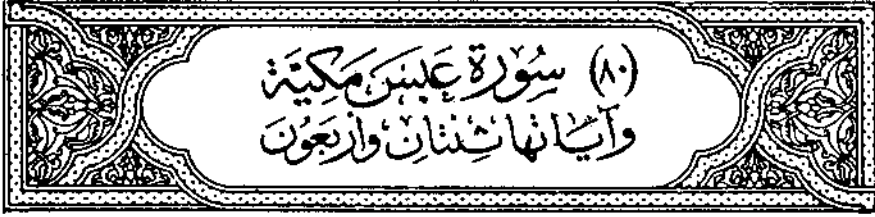 (٨٠) سُورَة عَبَسَ مَكِيَّة
وَآيَاتهَا ثِنْتَانِ وَأَرْبَعُونَ